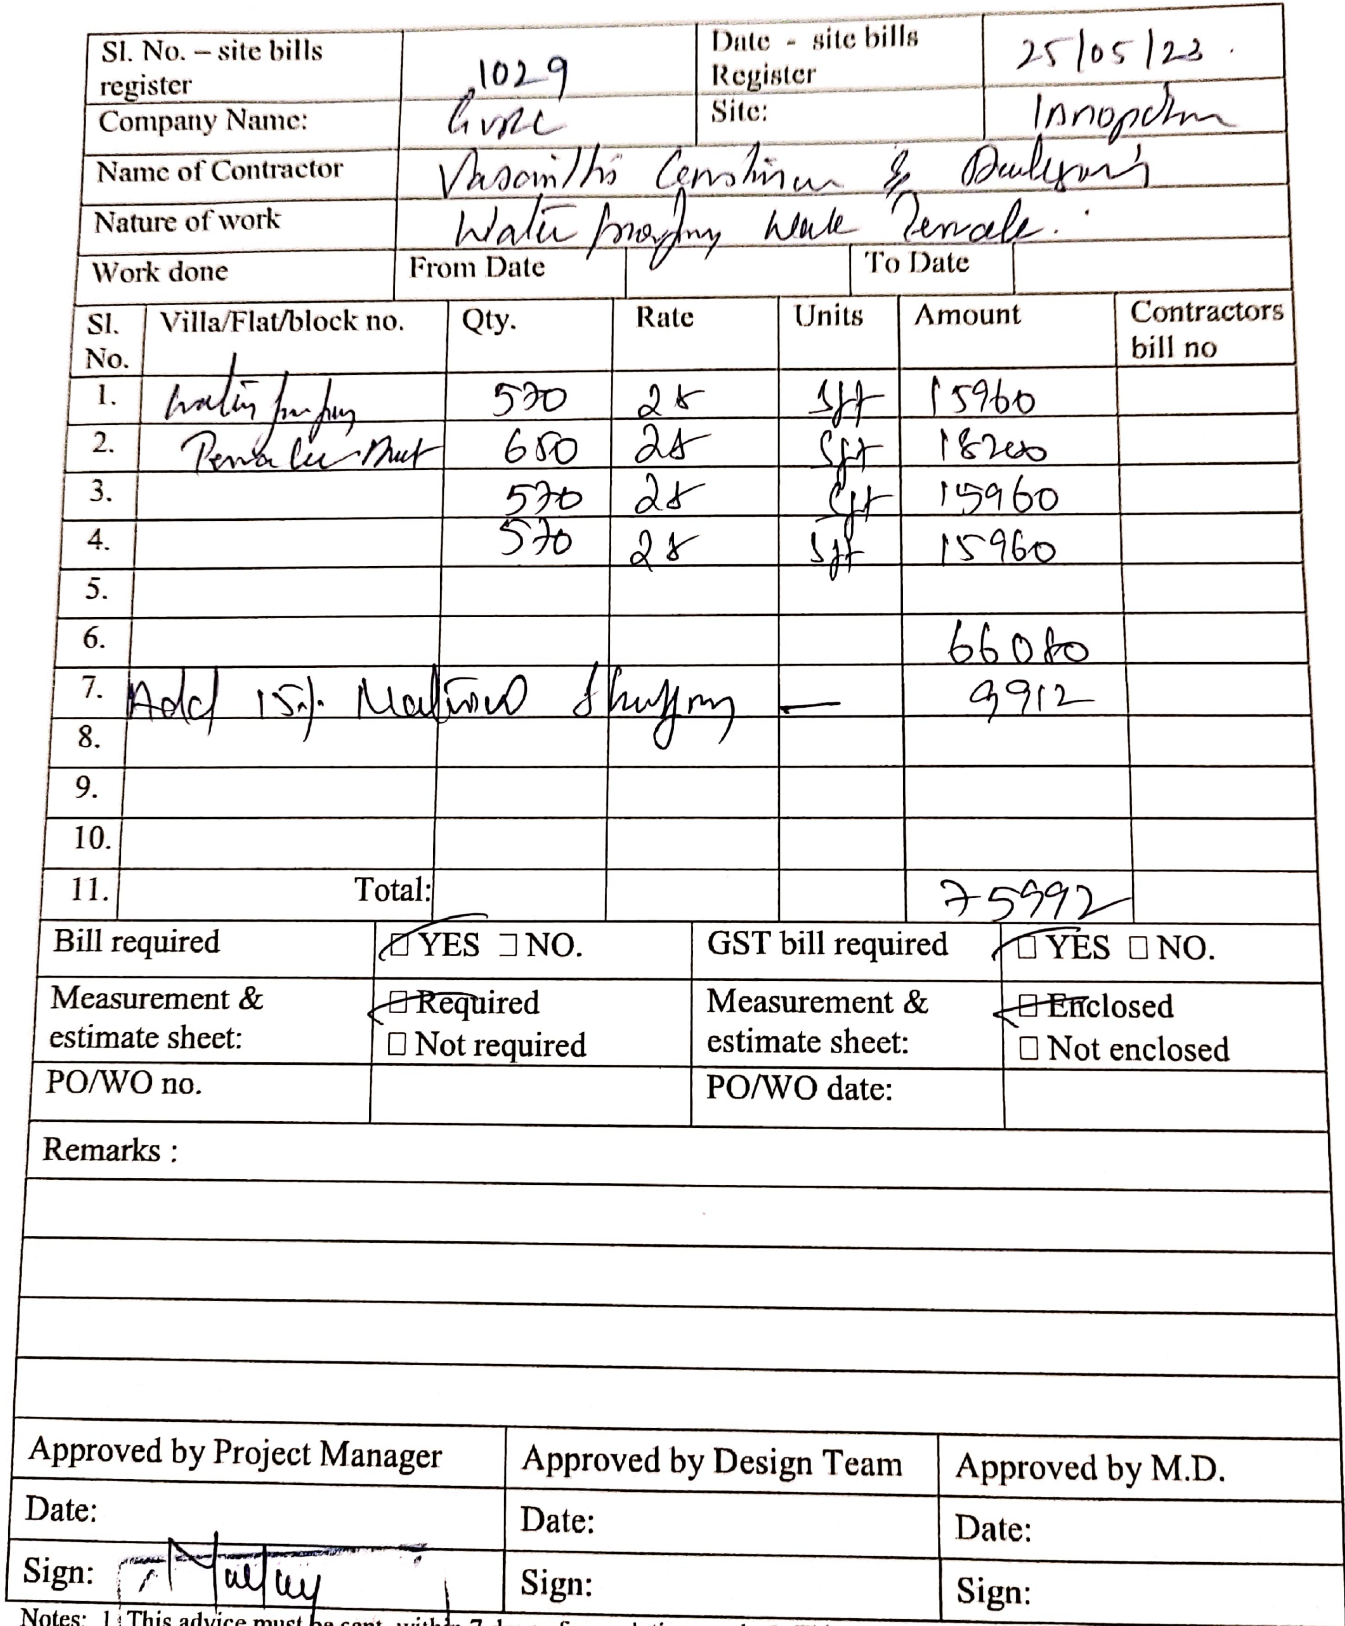 Sl. No. – site bills register 1029 Date - site bills Register 25/05/23
Company Name: GVRC Site: Innopolis
Name of Contractor Constructions &
Nature of work Water proofing work Terrace.
Work done From Date To Date
Sl. No. Villa/Flat/block no. Qty. Rate Units Amount Contractors bill no
1. Water proofing 570 28 Sft 15960
2. 650 28 Sft 18200
3. 570 28 Sft 15960
4. 570 28 Sft 15960
5.
6. 66080
7. Add 15% Material — 9912
8.
9.
10.
11. Total: 75992
Bill required □ YES □ NO. GST bill required □ YES □ NO.
Measurement & estimate sheet: □ Required □ Not required Measurement & estimate sheet: □ Enclosed □ Not enclosed
PO/WO no. PO/WO date:
Remarks :
Approved by Project Manager Approved by Design Team Approved by M.D.
Date: Date: Date:
Sign: Sign: Sign:
Notes: 1. This advice must be sent within 7 days